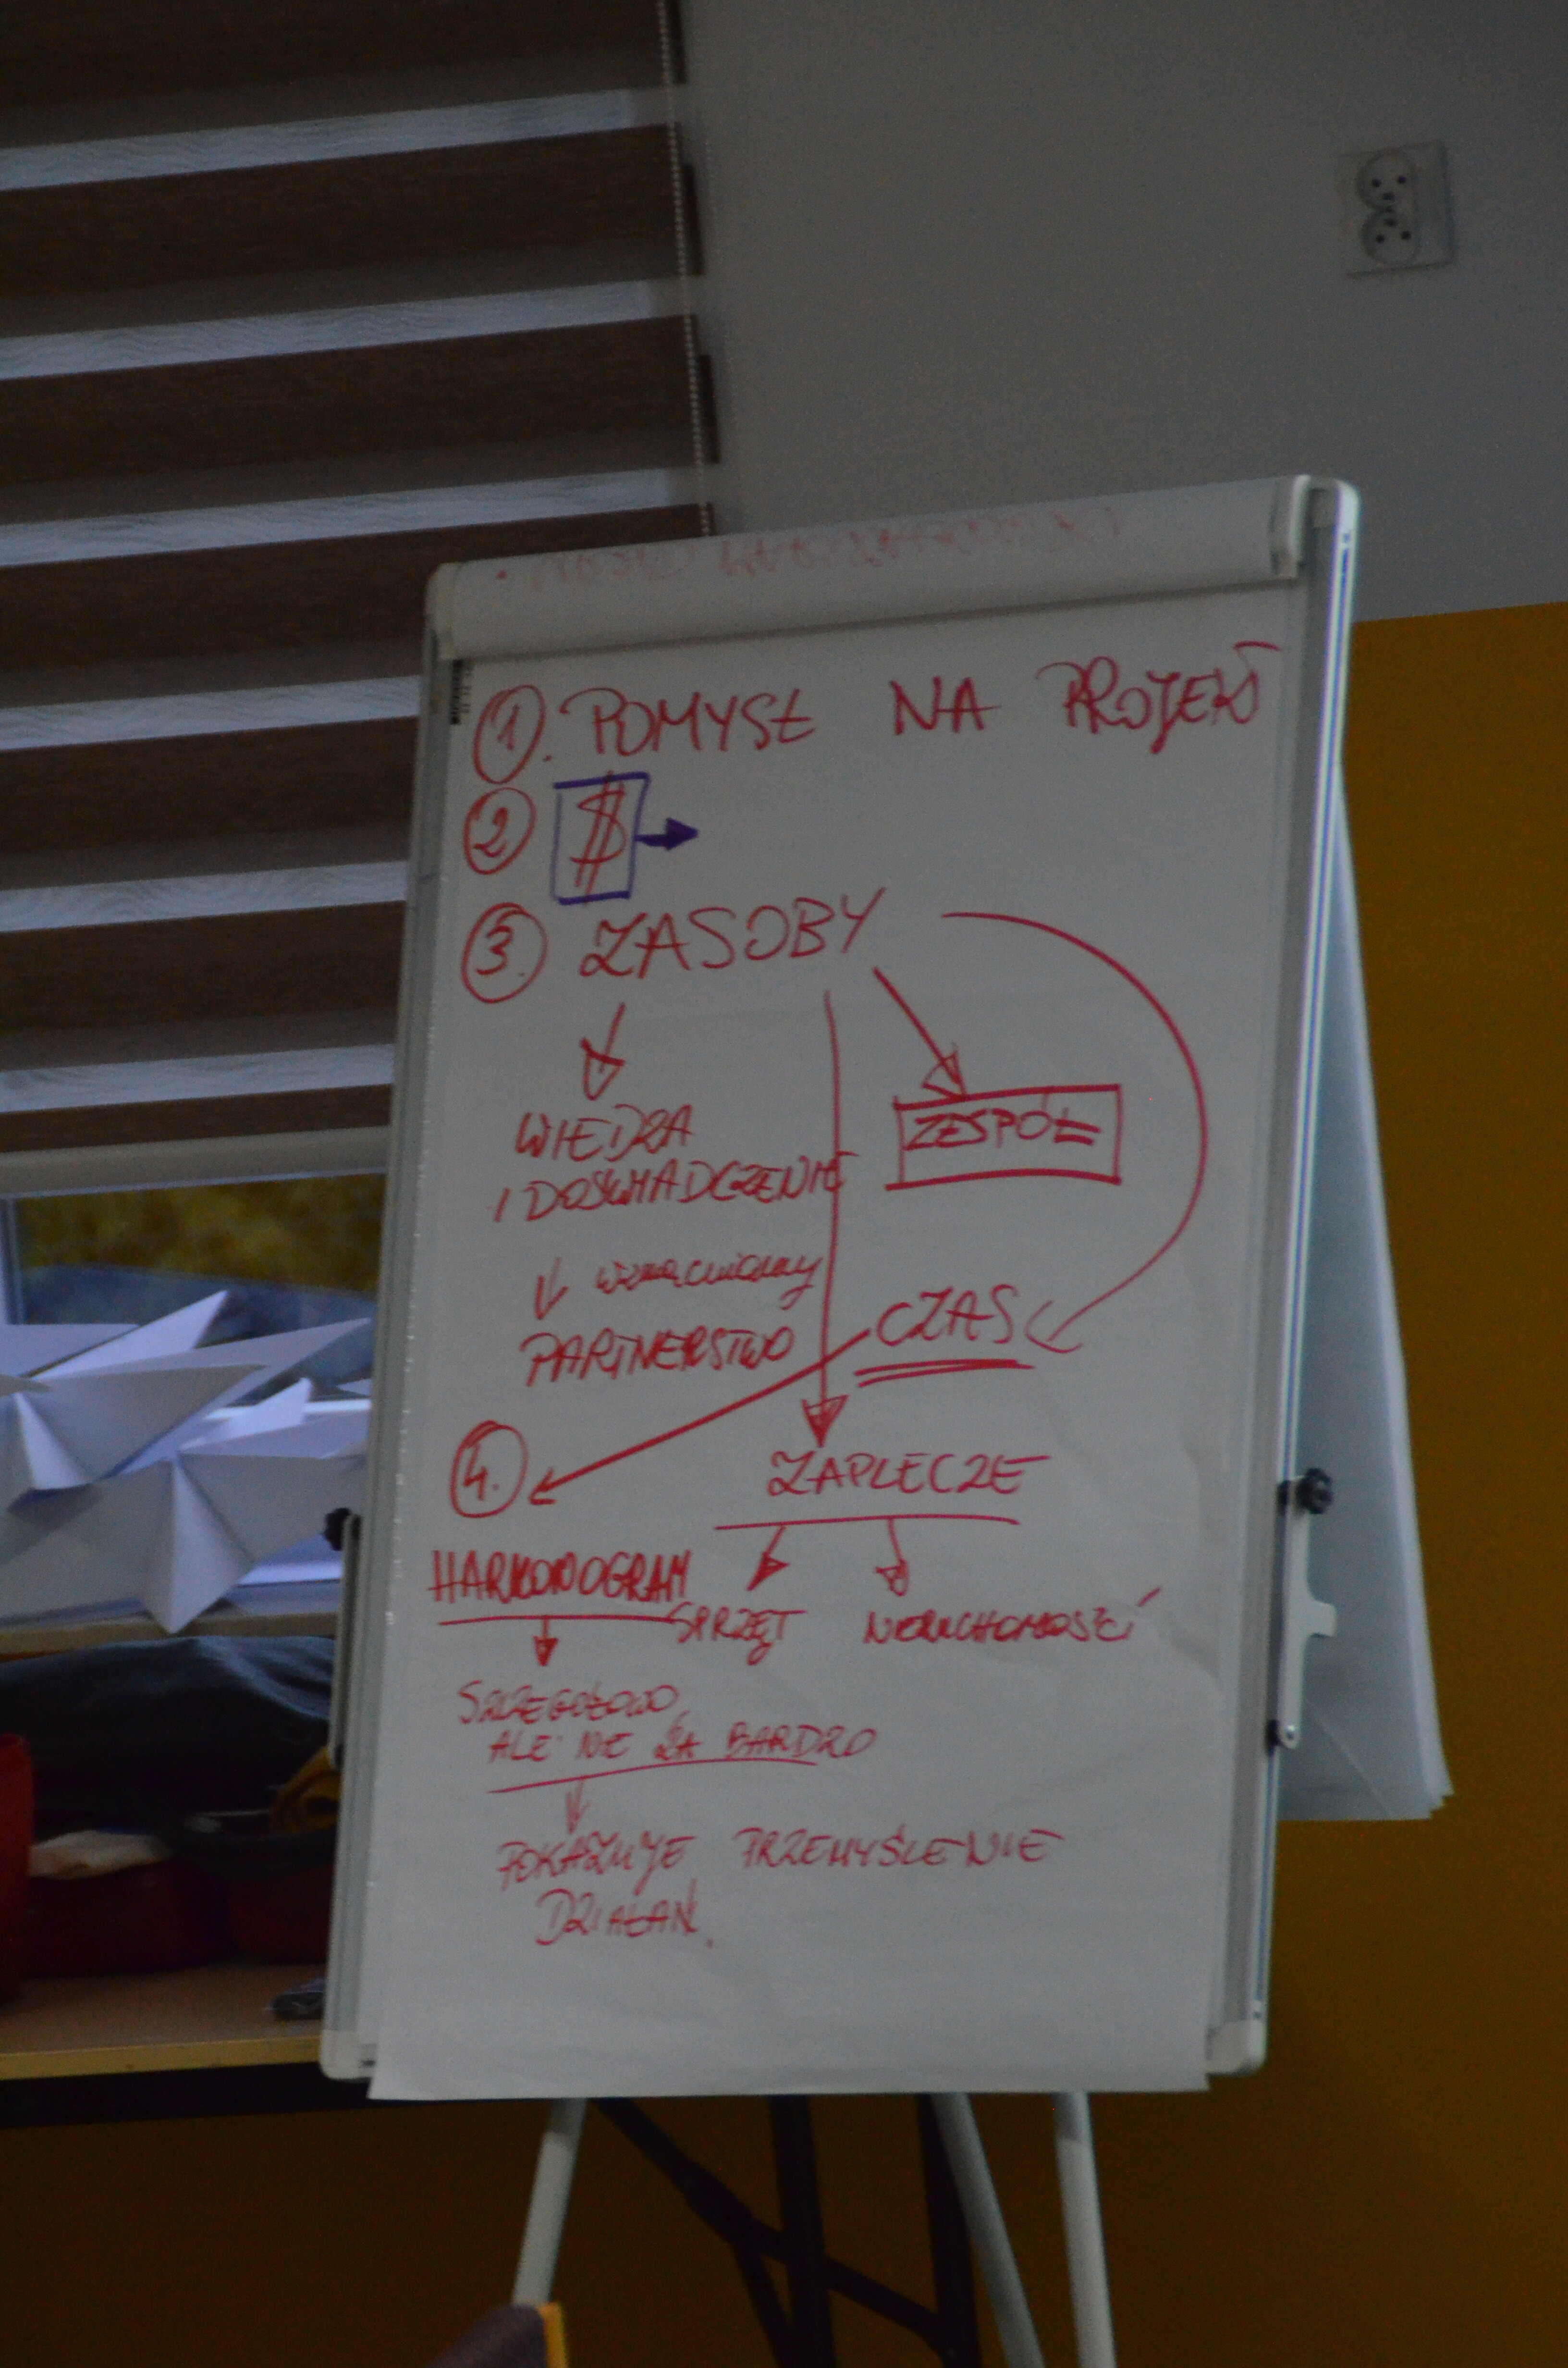 1. POMYSŁ NA PROJEKT
2 $
3. ZASOBY
WIEDZA
I DOŚWIADCZENIE
ZESPÓŁ
wzmacniamy
PARTNERSTWO
CZAS
4.
ZAPLECZE
HARMONOGRAM
SPRZĘT NIERUCHOMOŚCI
SZCZEGÓŁOWO,
ALE NIE ZA BARDZO
POKAZUJE PRZEMYŚLENIE
DZIAŁAŃ.